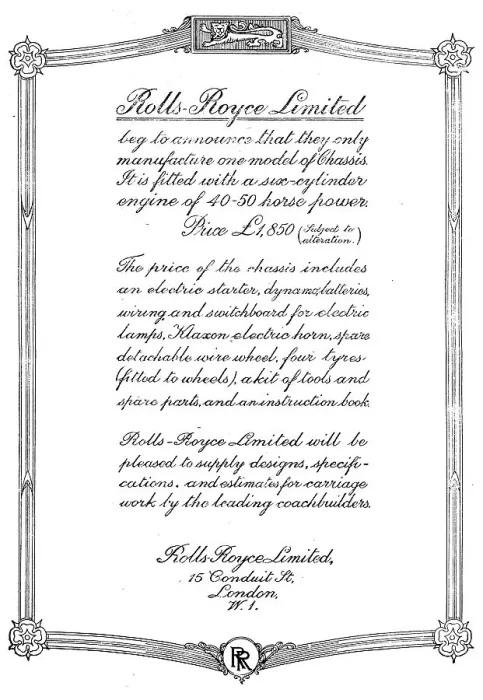 Rolls-Royce Limited
beg to announce that they only
manufacture one model of Chassis.
It is fitted with a six-cylinder
engine of 40-50 horse power.
Price £1,850 (Subject to
alteration.)
The price of the chassis includes
an electric starter, dynamo, batteries,
wiring and switchboard for electric
lamps, Klaxon electric horn, spare
detachable wire wheel, four tyres
(fitted to wheels), a kit of tools and
spare parts, and an instruction book.
Rolls-Royce Limited will be
pleased to supply designs, specifi-
cations, and estimates for carriage
work by the leading coachbuilders.
Rolls-Royce Limited,
15 Conduit St.
London,
W. 1.
RR